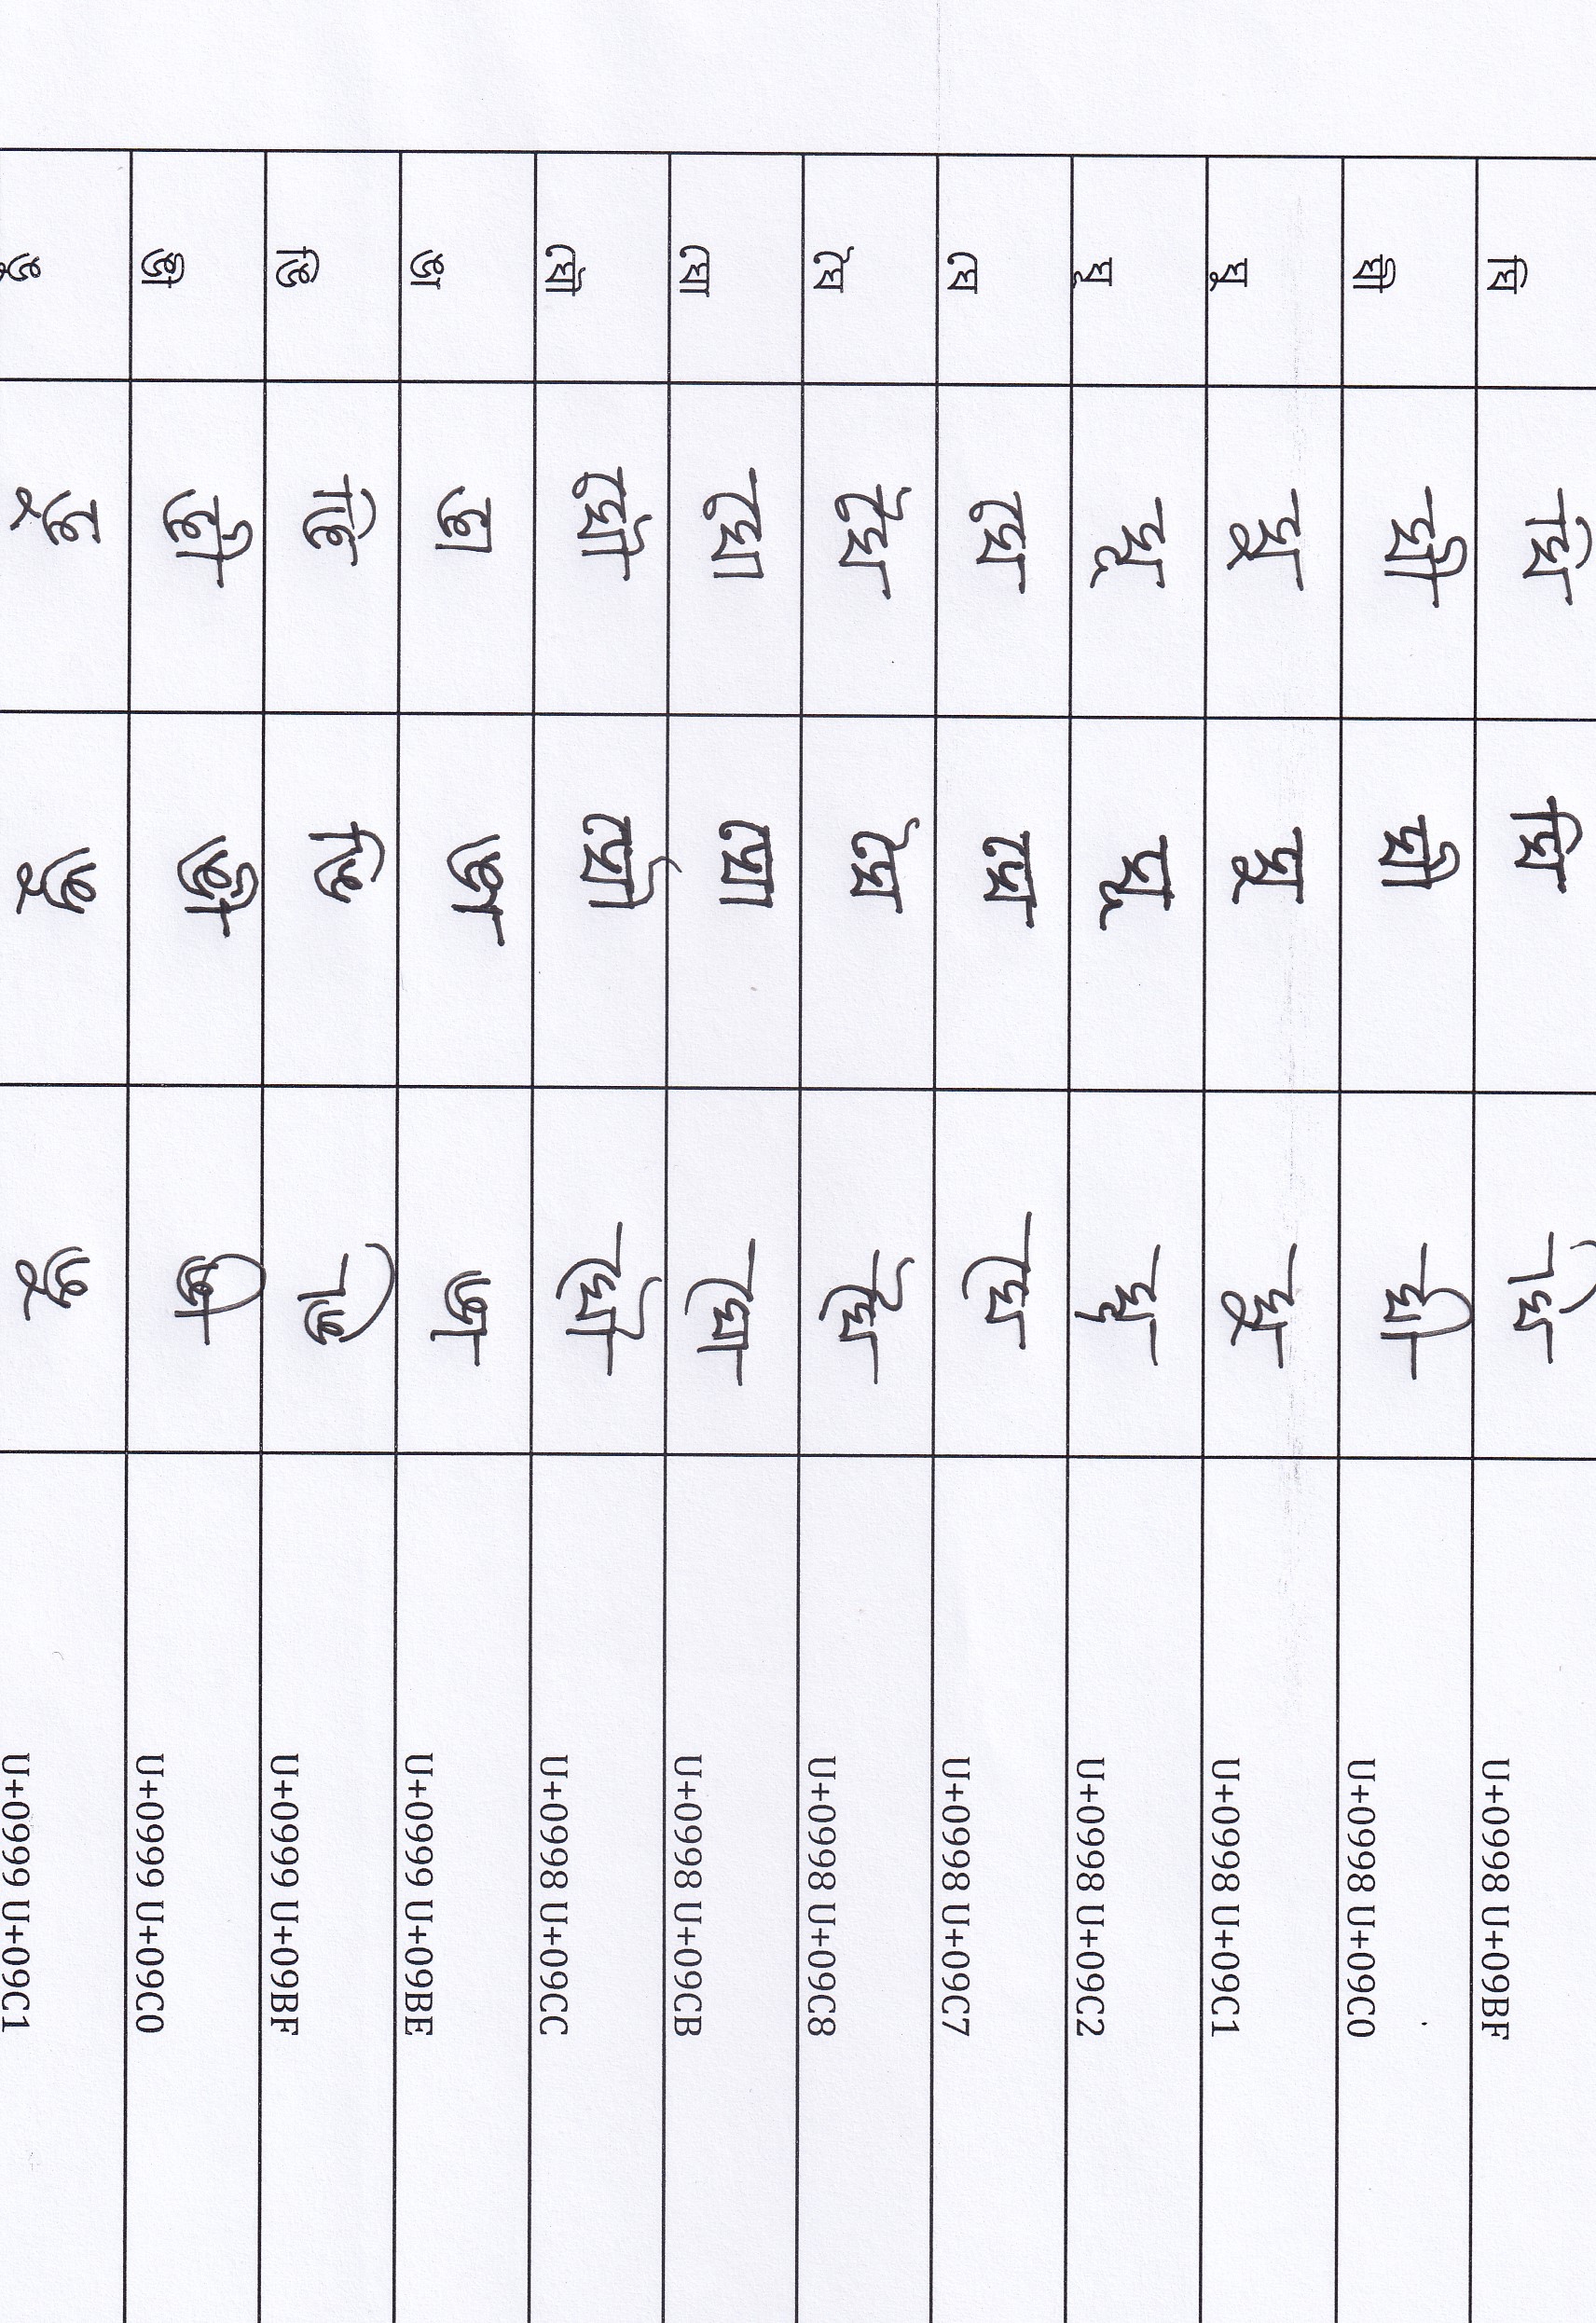 ঘি ঘি ঘি ঘি U+0998 U+09BF
ঘী ঘী ঘী ঘী U+0998 U+09C0
ঘু ঘু ঘু ঘু U+0998 U+09C1
ঘূ ঘূ ঘূ ঘূ U+0998 U+09C2
ঘে ঘে ঘে ঘে U+0998 U+09C7
ঘৈ ঘৈ ঘৈ ঘৈ U+0998 U+09C8
ঘো ঘো ঘো ঘো U+0998 U+09CB
ঘৌ ঘৌ ঘৌ ঘৌ U+0998 U+09CC
ঙা ঙা ঙা ঙা U+0999 U+09BE
ঙি ঙি ঙি ঙি U+0999 U+09BF
ঙী ঙী ঙী ঙী U+0999 U+09C0
ঙু ঙু ঙু ঙু U+0999 U+09C1